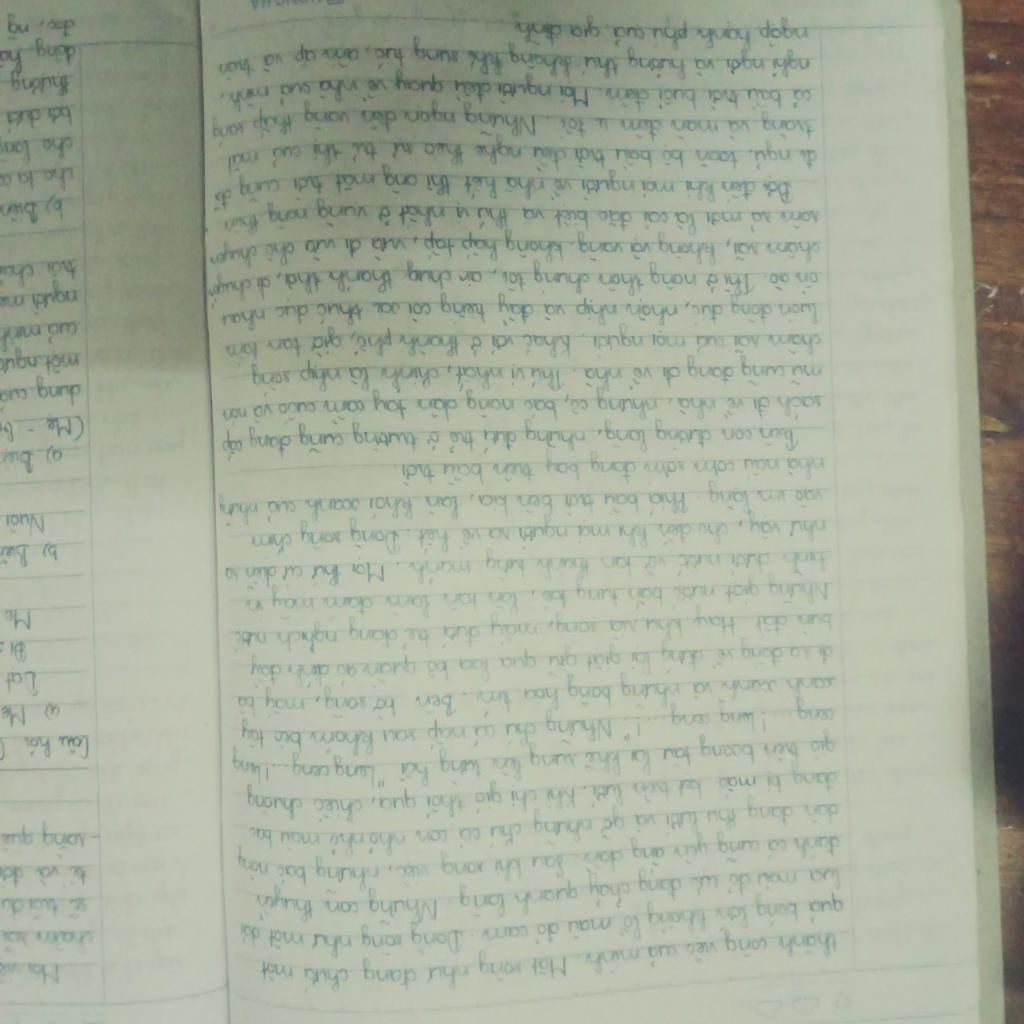 thành công việc của mình. Mặt sông như đang chứa một
quả bóng lớn khổng lồ màu đỏ cam. Dòng sông như một dải
lụa màu đỏ rực đang chảy quanh làng. Những con thuyền
đánh cá cũng yên ắng dần. Sau khi xong việc, những bác nông
dân đang thu lưới và gỡ những chú cá con nho nhỏ màu bạc
đang bị mắc kẹt trên lưới. Khi chị gió thổi qua, chiếc chuông
gió trên buồng tàu lại khẽ rung lên từng hồi "Leng ceng... leng
ceng... ! leng ceng... !". Những chú cá nấp sau khóm bèo tây
xanh xanh và những bông hoa tím. Bên bờ sông, mấy bà
đi ra đồng về đang lội giặt giũ qua loa bộ quần áo dính đầy
bùn đất. Hay khu xa xong, mấy đứa trẻ đang nghịch nước.
Những giọt nước bắn tung toé, lan tán làm đám mây in
hình dưới nước vỡ tan thành từng mảnh. Mọi thứ cứ diễn ra
như vậy, cho đến khi mọi người ra về hết. Dòng sông chìm
vào im lặng. Phía bầu trời bên kia, làn khói xanh của những
nhà nấu cơm sớm đang bay trên bầu trời.
Trên con đường làng, những đứa trẻ ở trường cũng đang cắp
sách đi về nhà, những cô, bác nông dân tay cầm cuốc và nón
mũ cũng đang đi về nhà. Thú vị nhất, chính là nhịp sống
chậm rãi của mọi người. Khác với ở thành phố, giờ tan tầm
luôn đông đúc, nhộn nhịp và đầy tiếng còi xe thúc dục nhau
ồn ào. Thì ở nông thôn chúng tôi, ai cũng thảnh thơi, di chuyển
chậm rãi, không vội vàng, không hấp tấp, vừa đi vừa trò chuyện
rôm rả mới là cái đặc biệt và thú vị nhất ở vùng nông thôn.
Đợi đến khi mọi người về nhà hết thì ông mặt trời cũng đã
đi ngủ, toàn bộ bầu trời đều nghe theo sự trị của mặt
trăng và màn đêm u tối. Những ngọn đèn vàng thắp sáng
cả bầu trời buổi đêm. Mọi người đều quay về nhà của mình,
nghỉ ngơi và hưởng thụ không khí sung túc, ấm áp và tràn
ngập hạnh phúc của gia đình.
Mọi việ
chăm
sông quê
Câu hỏi
a) Mẹ
Mẹ
b) Biện
Nuôi
a) Biện
(Mẹ -
dụng của
một người
của mình
người mẹ
b) Biện
cho ta
cho lòng
bởi dưới
thường